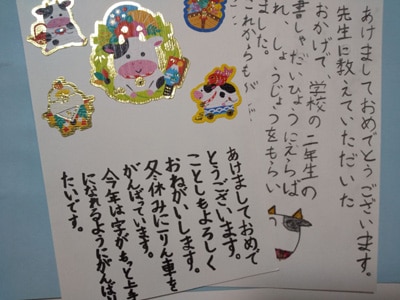 あけましておめでとうございます。
先生に教えていただいた
おかげで、学校の二年生の
書しゃだいひょうにえらば
れ、しょうじょうをもらい
ました。
これからもが
あけましておめで
とうございます。
ことしもよろしく
おねがいします。
冬休みに一りん車を
がんばっています。
今年は字がもっと上手
になれるようにがんばり
たいです。